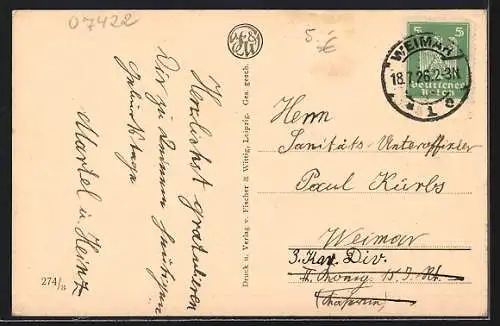 07422
5.-€
Herzlichst gratulieren
Dir zu Deinem heutigen
Geburtstage
Martel u Heinz
274/8
Druck u. Verlag v. Fischer & Wittig, Leipzig. Ges. gesch.
5 5
Deutsches
Reich
WEIMAR
18.7.26.2-3N
* 1 c
Herrn
Sanitäts-Unteroffizier
Paul Kürbs
Weimar
3. Kav. Div.
15. J. Rt.
(Kaserne)